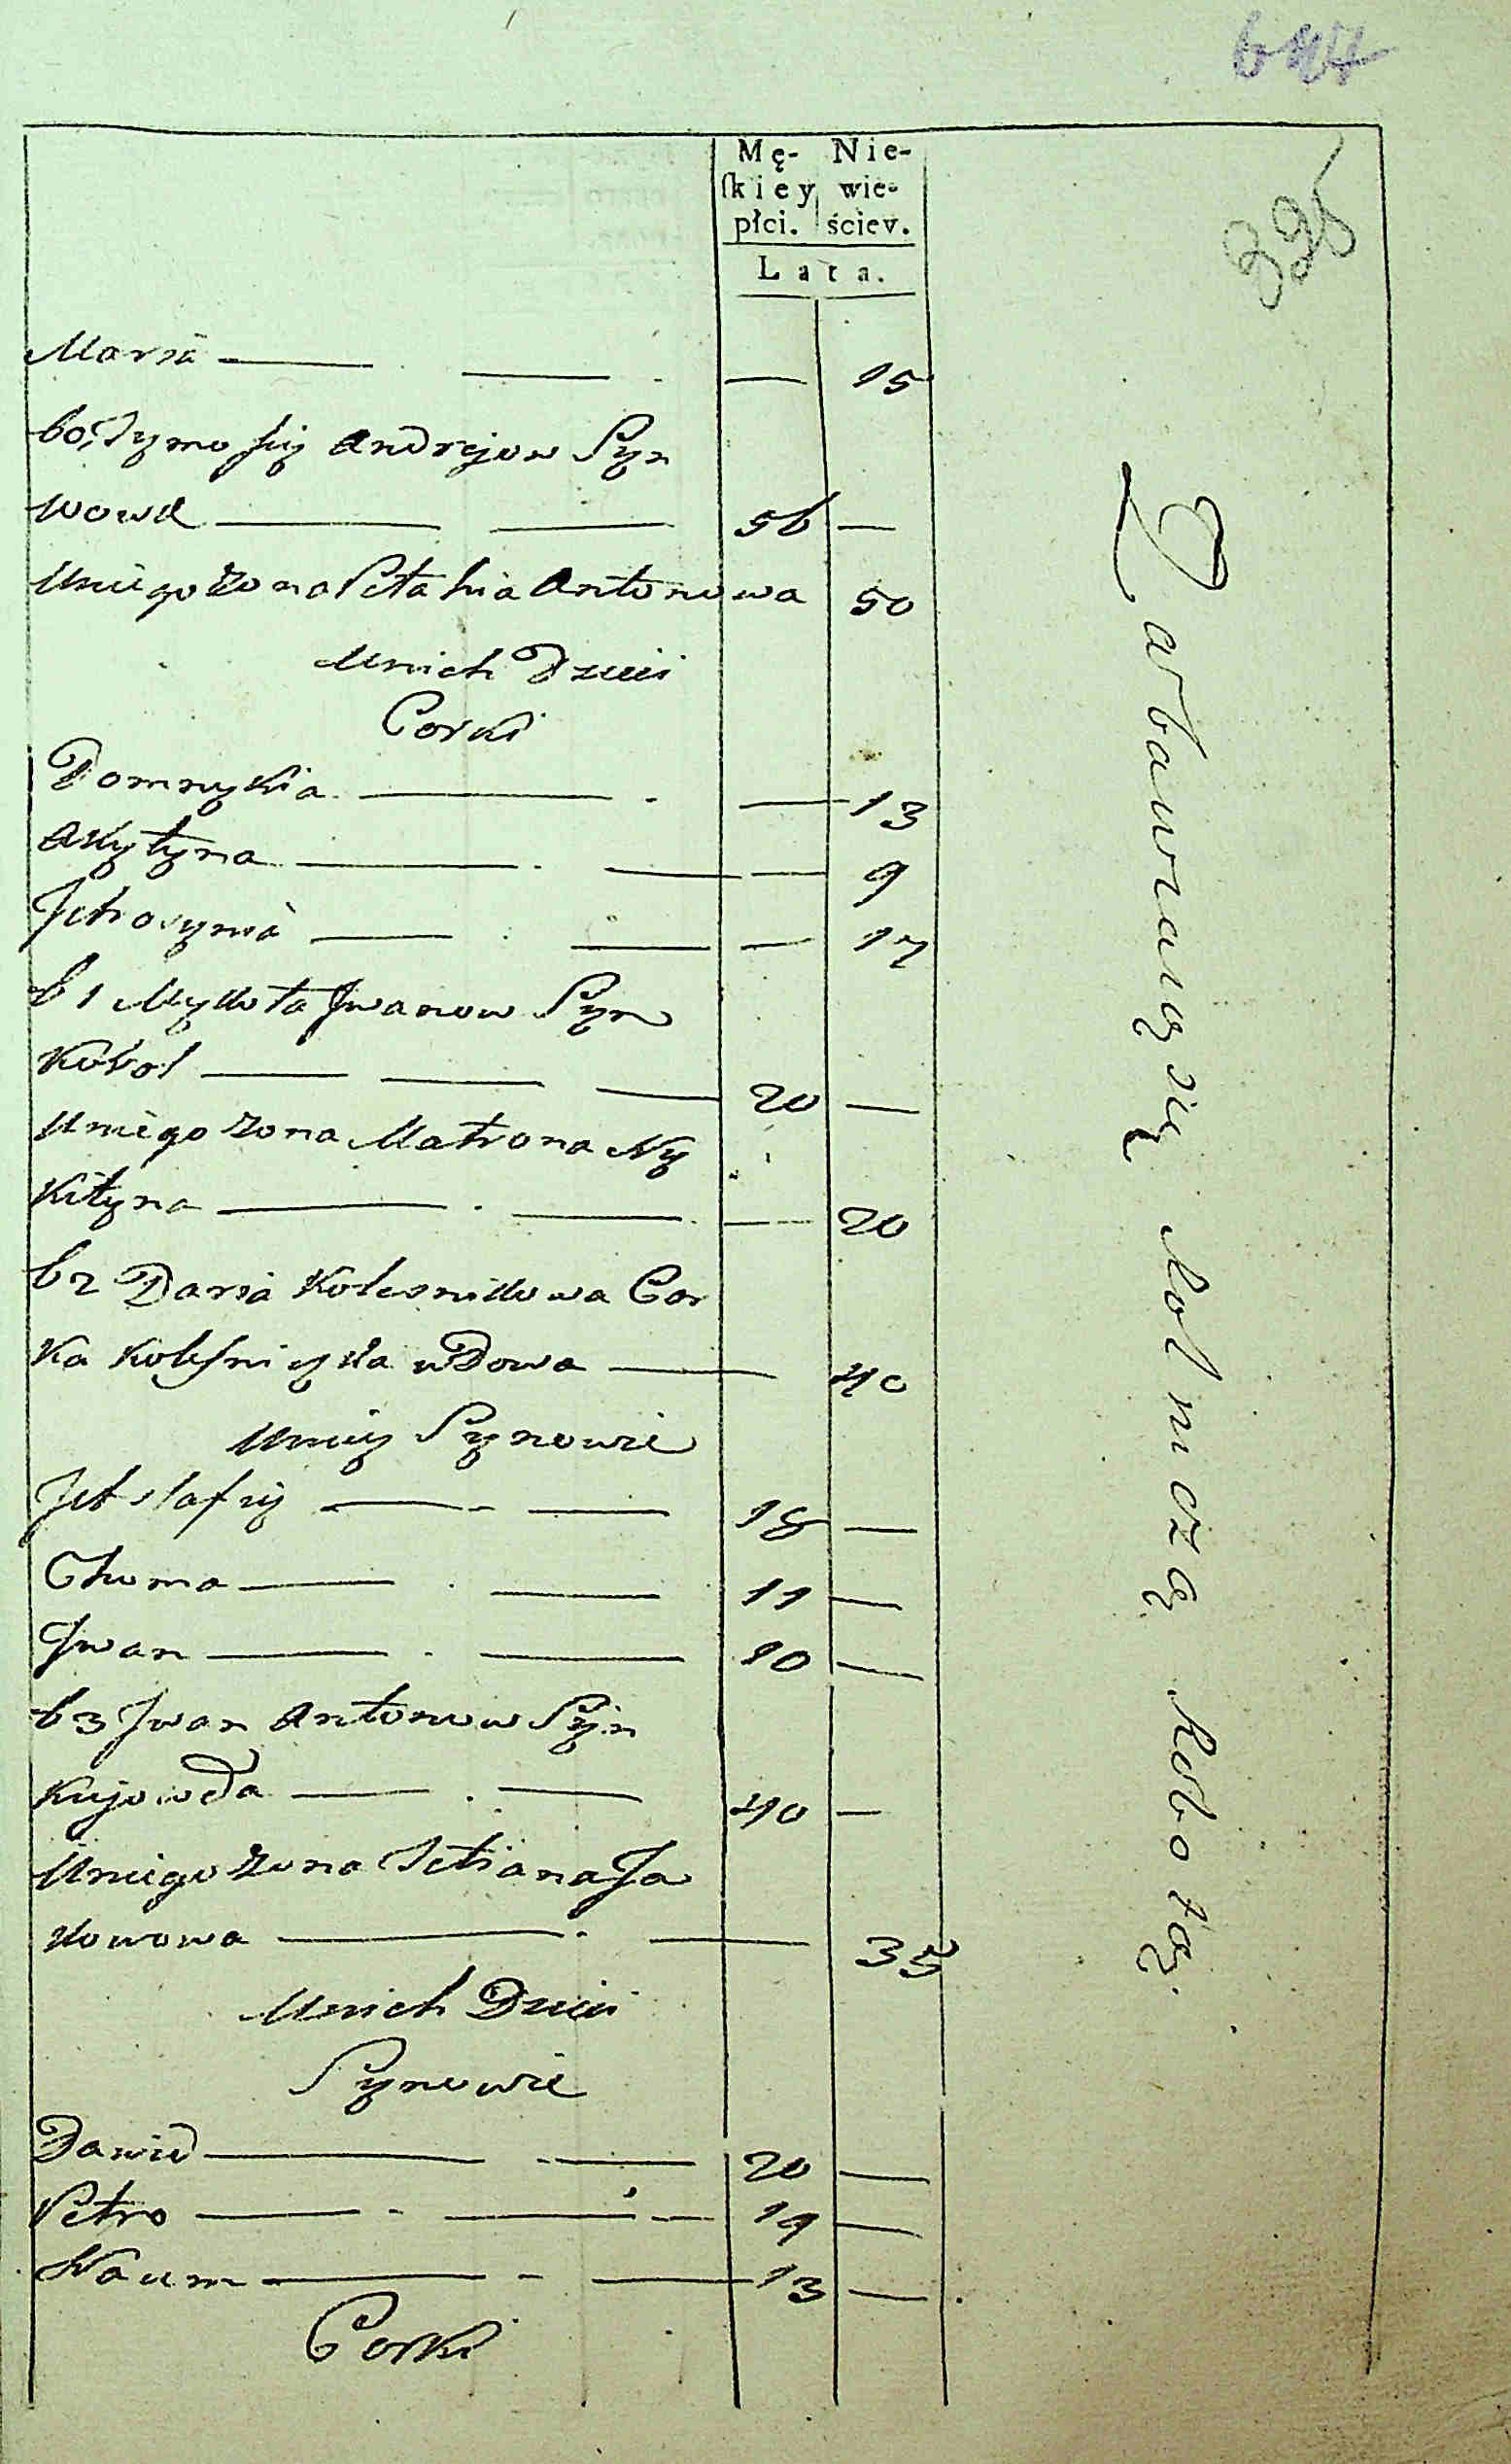 395
Mę- Nie-
ſkiey wie-
płci. ściey.
Lata.
Maria — — — 15
60, Tymofiy Andrejow Syn
wowk — — 56 —
Uniego Zona Petahia Antonowa 50
Unich Dzieci
Corki
Domnykia — — 13
Akytyna — — — 9
Jefrosynia — — — 17
61 Mykita Jwanow Syn
Kowal — — — 20 —
Uniego Zona Matrona Ny
kityna — — — 20
62 Daria Kolesnikowa Cor
ka Kolesniczka wDowa — 40
Uniey Synowie
Jefstafiy — — 18 —
Choma — — 11 —
Jwan — — 10 —
63 Jwan Antonow Syn
Kujowda — — 40 —
Uniego Zona Tetiana Ja
kowowa — — 35
Unich Dzieci
Synowie
Dawid — — 20 —
Petro — — 19 —
Naum — — 13 —
Corki
Zabawiaią się Rolniczą Robotą.